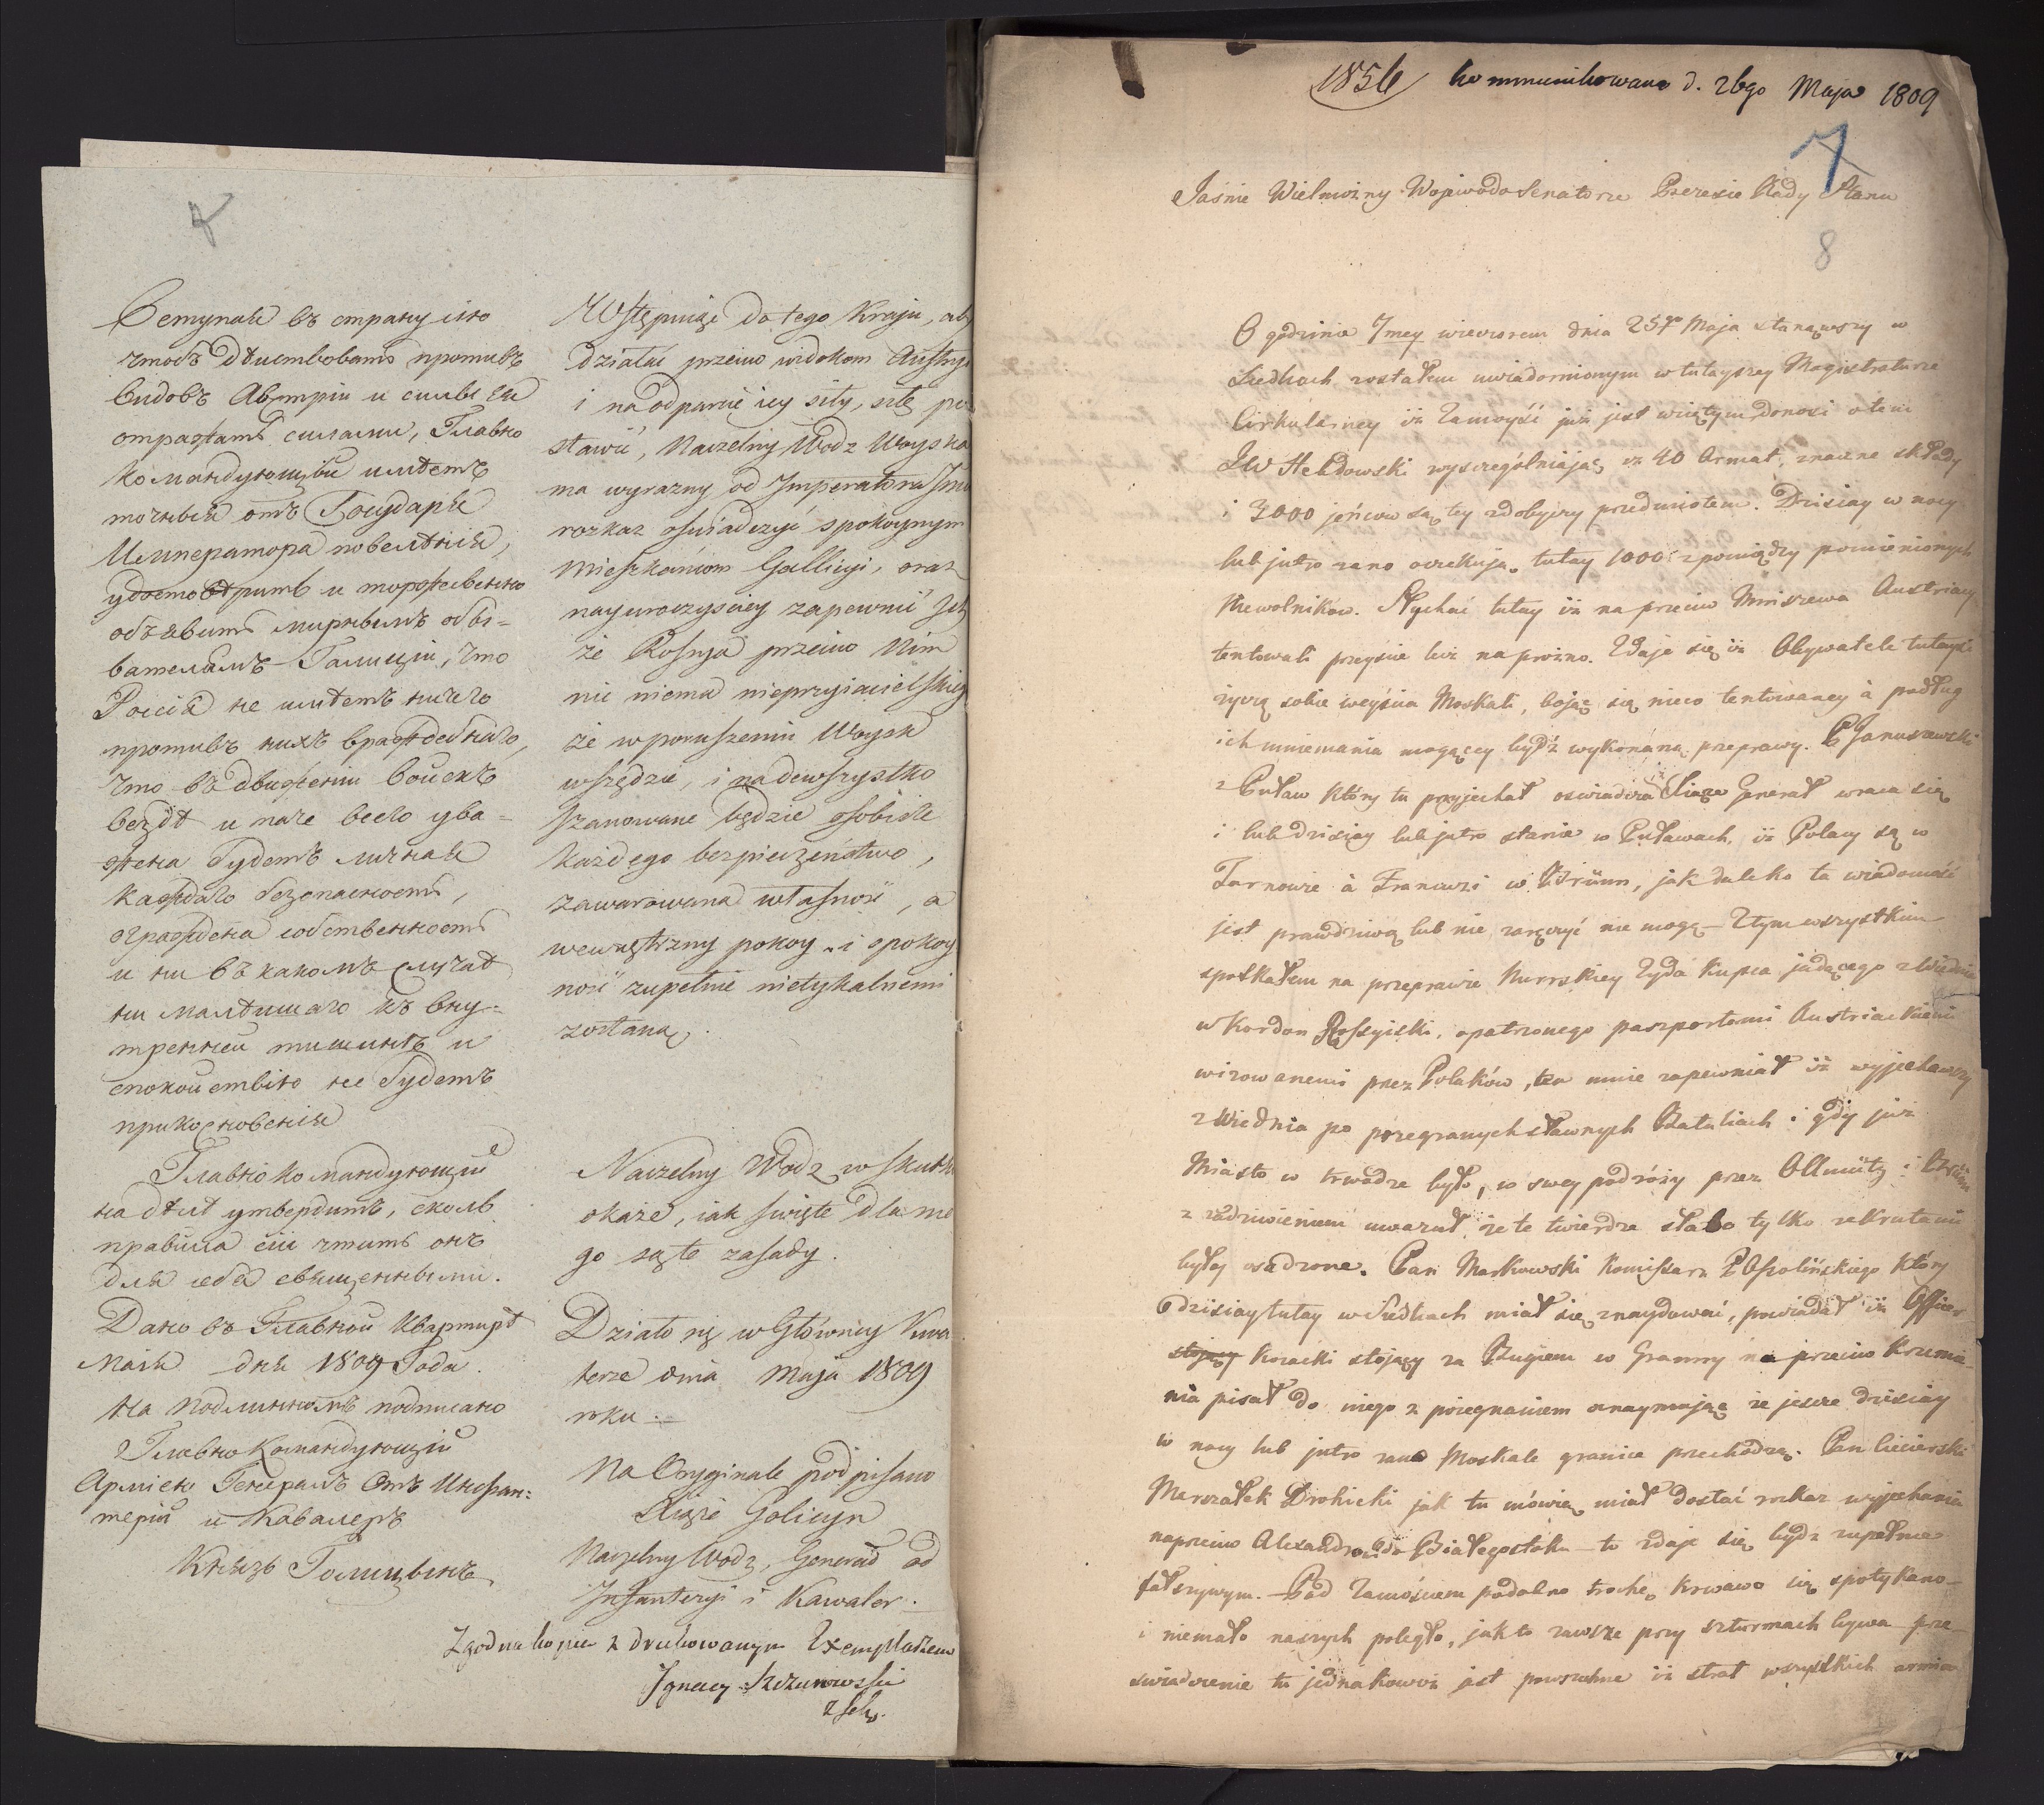 Вступая въ страну сию
чтобъ дѣйствовать противъ
видовъ Австріи и силы ея
отражать силами, Главно
командующій имѣетъ
точныя отъ Государя
Императора повелѣнія,
и торжественно
объявить мирнымъ обы=
вателямъ Галиціи, что
Россія не имѣетъ ничего
противъ нихъ враждебнаго,
что въ движеніи войскъ
вездѣ и паче всего ува=
жена будетъ личная
каждаго безопасность,
ограждена собственность
и ни въ какомъ случаѣ
ни малѣйшаго къ вну=
тренней тишинѣ и
спокойствію не будетъ
прикосновенія
Главнокомандующій
на дѣлѣ утвердитъ, сколь
правила сіи чтитъ онъ
для себя священными.
Дано въ Главной Квартирѣ
Маія дня 1809 Года.
На подлинномъ подписано
Главнокомандующій
Арміею Генералъ Отъ Инфан=
теріи и Кавалеръ
Князь Голицынъ
Wstępuiąc do tego Kraju, aby
działać przeciw widokom Austryi
i na odparcie iey siły, siłę po
stawić, Naczelny Wódz Woyska
ma wyrazny od Imperatora Jmci
rozkaz oświadczyć spokoynym
Mieszkańcom Gallicyi, oraz
nayuroczyściey zapewnić Ich
że Rossyja przeciw Nim
nic niema nieprzyiacielskiego
że w poruszeniu Woysk
wszędzie, i nadewszystko
szanowane będzie osobiste
każdego bezpieczeństwo,
zawarowana własność, a
wewnętrzny pokoy i spokoy
ność zupełnie nietykalnemi
zostaną.
Naczelny Wódz w skutku
okaże, iak święte dla nie
go są te zasady.
Działo się w Główney Kwa
terze dnia Maja 1809
roku.
Na Oryginale podpisano
Xiąże Golicyn
Naczelny Wódz, Generał od
Infanteryi i Kawaler.
Zgodna kopia z drukowanym Exemplarzem
Ignacy Szczurowski
1856 kommunikowano d. 26go Maja 1809
7
Jaśnie Wielmożny Wojewodo Senatorze Prezesie Rady Stanu
8
O godzinie 7mey wieczorem dnia 25go Maja stanąwszy w
Siedlcach zostałem uwiadomionym w tutayszey Magistraturze
Cirkularney iż Zamość już jest wziętym donosi o tem
JW wyszczególniając iż 40 Armat, znaczne składy
i 3000 jeńców są tey zdobyczy przedmiotem. Dzisiay w nocy
lub jutro rano oczekują tutay 1000 z pomiędzy pomienionych
Niewolników. Słychać tutay iż na przeciw Mniszewa Austriacy
tentowali przeyście lecz na prożno. Zdaje się iż Obywatele tutaysi
życzą sobie weyścia Moskali, bojąc się nieco tentowaney à podług
ich mniemania mogącey bydź wykonaną przeprawy. P Januszewski
z Puław który tu przyjechał oswiadcza iż Xiąże Generał wraca się
i lub dzisiay lub jutro stanie w Puławach, iż Polacy są w
Tarnowie à Francuzi w Brünn, jak daleko ta wiadomość
jest prawdziwą lub nie zaręczyć nie mogę – Z tym wszystkim
spotkałem na przeprawie Nurskiey Żyda Kupca jadącego z Wiednia
w Kordon Rossyiski, opatrzonego paszportami Austriackiemi
wizowanemi przez Polaków, ten mnie zapewniał iż wyjechawszy
z Wiednia po przegranych sławnych Bataliach i gdy już
Miasto w trwodze było, w swey podróży przez Ollmütz i Brünn
z zadziwieniem uważał, że te twierdze słabo tylko rekrutami
były osadzone. Pan Markowski Komissarz P Ossolińskiego który
dzisiay tutay w Siedlcach miał się znaydować, powiadał iż Officer
stojący Kozacki stojący za Bugiem w Granny na przeciw Krzemie=
nia pisał do niego z pożegnaniem oznaymując że jeszcze dzisiay
w nocy lub jutro rano Moskale granice przechodzą. Pan Ciecierski
Marszałek Drohicki jak tu mówią miał dostać rozkaz wyjechania
naprzeciw Alexandrowi do Białegostoku – to zdaje się bydz zupełnie
fałszywym. – Pod Zamościem podobno trochę krwawo się spotykano –
i niemało naszych poległo, jak to zawsze przy szturmach bywa prze=
świadczenie tu jednakowoż jest powszechne iż strat wszystkich armia